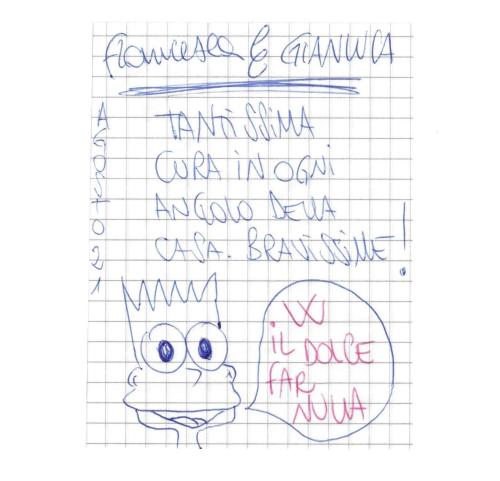 Francesca E GIANLUCA
AGOSTO 21
TANTiSSiMA
CURA iN OGNi
ANGOLO DELLA
CASA. BRAViSSiME!
W
iL DOLCE
FAR
NULLA